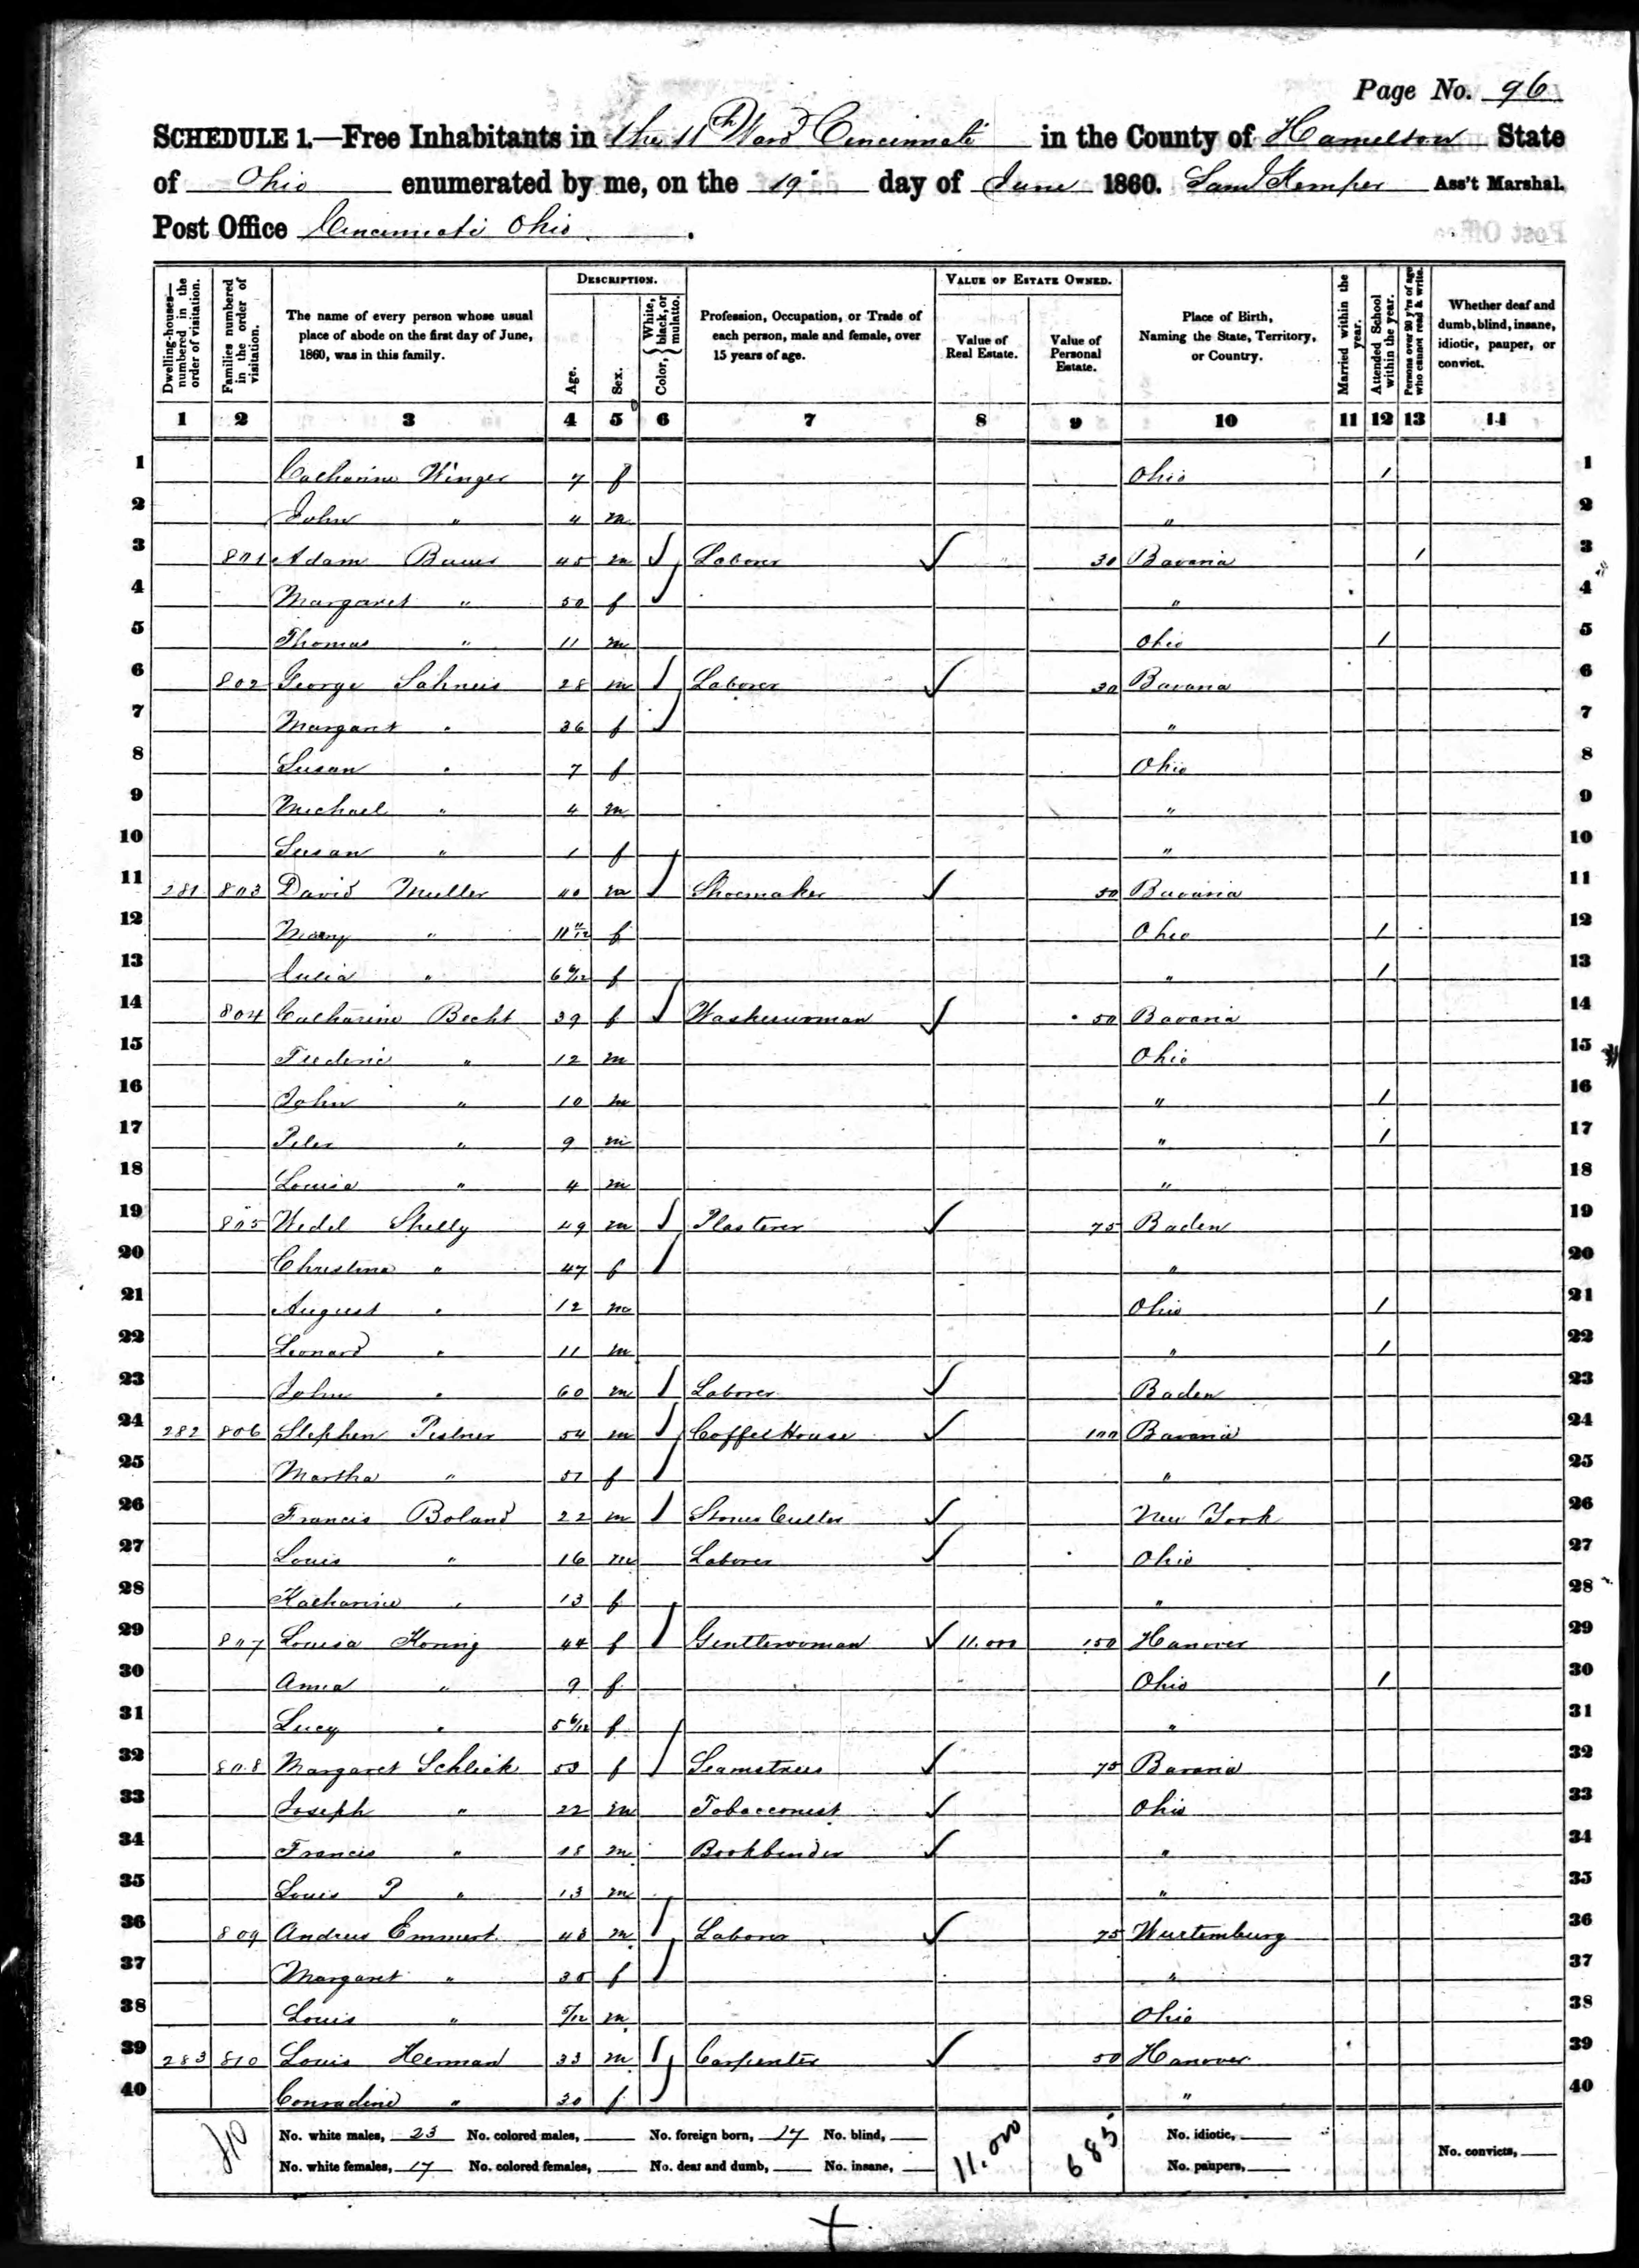 Page No. 96
SCHEDULE 1.—Free Inhabitants in the 11th Ward Cincinnati in the County of Hamelton State
of Ohio enumerated by me, on the 19" day of June 1860. Saml Kemper Ass't Marshal.
Post Office Cincinnati Ohio.
Post Office
Dwelling-houses—numbered in the order of visitation.
Families numbered in the order of visitation.
The name of every person whose usual place of abode on the first day of June, 1860, was in this family.
DESCRIPTION.
Age.
Sex.
Color, { White, black, or mulatto.
Profession, Occupation, or Trade of each person, male and female, over 15 years of age.
VALUE OF ESTATE OWNED.
Value of Real Estate.
Value of Personal Estate.
Place of Birth, Naming the State, Territory, or Country.
Married within the year.
Attended School within the year.
Persons over 20 y'rs of age who cannot read & write.
Whether deaf and dumb, blind, insane, idiotic, pauper, or convict.
1 2 3 4 5 6 7 8 9 10 11 12 13 14
1 Catharine Winger 7 f Ohio 1 1
2 John " 4 m " 2
3 801 Adam Bauer 45 m Laborer 30 Bavaria 1 3
4 Margaret " 50 f " 4
5 Thomas " 11 m Ohio 1 5
6 802 George Sahneis 28 m Laborer 30 Bavaria 6
7 Margaret " 36 f " 7
8 Susan " 7 f Ohio 8
9 Michael " 4 m " 9
10 Susan " 1 f " 10
11 281 803 David Muller 40 m Shoemaker 50 Bavaria 11
12 Mary " 11 f Ohio 1 12
13 Julia " 6 6/12 f " 1 13
14 804 Catharine Becht 39 f Washerwoman 50 Bavaria 14
15 Frederic " 12 m Ohio 15
16 John " 10 m " 1 16
17 Peter " 9 m " 1 17
18 Louisa " 4 m " 18
19 805 Wedel Shelly 49 m Plasterer 75 Baden 19
20 Christina " 47 f " 20
21 August " 12 m Ohio 1 21
22 Leonard " 11 m " 1 22
23 John " 60 m Laborer Baden 23
24 282 806 Stephen Pistner 54 m Coffee House 100 Bavaria 24
25 Martha " 51 f " 25
26 Francis Boland 22 m Stone Cutter New York 26
27 Louis " 16 m Laborer Ohio 27
28 Katharine " 13 f " 28
29 807 Louisa Koring 44 f Gentlewoman 11.000 150 Hanover 29
30 Anna " 9 f Ohio 1 30
31 Lucy " 5 6/12 f " 31
32 808 Margaret Schlick 53 f Seamstress 75 Bavaria 32
33 Joseph " 22 m Tobacconist Ohio 33
34 Francis " 18 m Bookbinder " 34
35 Louis P " 13 m " 35
36 809 Andrew Emmert 43 m Laborer 75 Wurtemburg 36
37 Margaret " 35 f " 37
38 Louis " 5/12 m Ohio 38
39 283 810 Louis Herman 33 m Carpenter 50 Hanover 39
40 Conradine " 30 f " 40
40
No. white males, 23 No. colored males, No. foreign born, 17 No. blind, 11.000 685 No. idiotic,
No. white females, 17 No. colored females, No. deaf and dumb, No. insane, No. paupers, No. convicts,